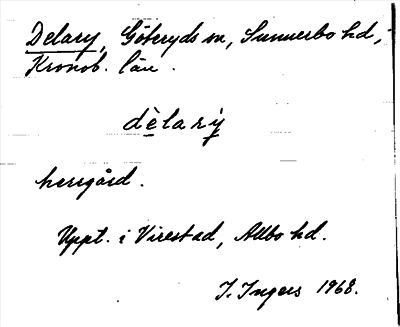 Delary, Göteryds sn, Sunnerbo hd,
Kronob. län.
dèlarý
herrgård.
Uppt. i Virestad, Allbo hd.
I. Ingers 1968.